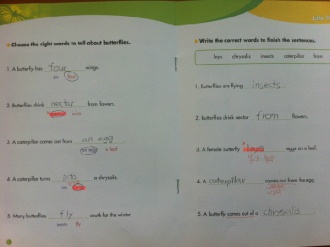 Choose the right words to tell about butterflies.
1. A butterfly has four wings.
six four
2. Butterflies drink nectar from flowers.
nectar
3. A caterpillar comes out from an egg
an egg a leaf
4. A caterpillar turns into a chrysalis.
on into
5. Many butterflies fly south for the winter
fly
Write the correct words to finish the sentences.
lays chrysalis insects caterpillar from
1. Butterflies are flying insects.
2. Butterflies drink nectar from flowers.
3. A female butterfly eggs on a leaf.
4. A caterpillar comes out from the egg.
5. A butterfly comes out of a chrysalis